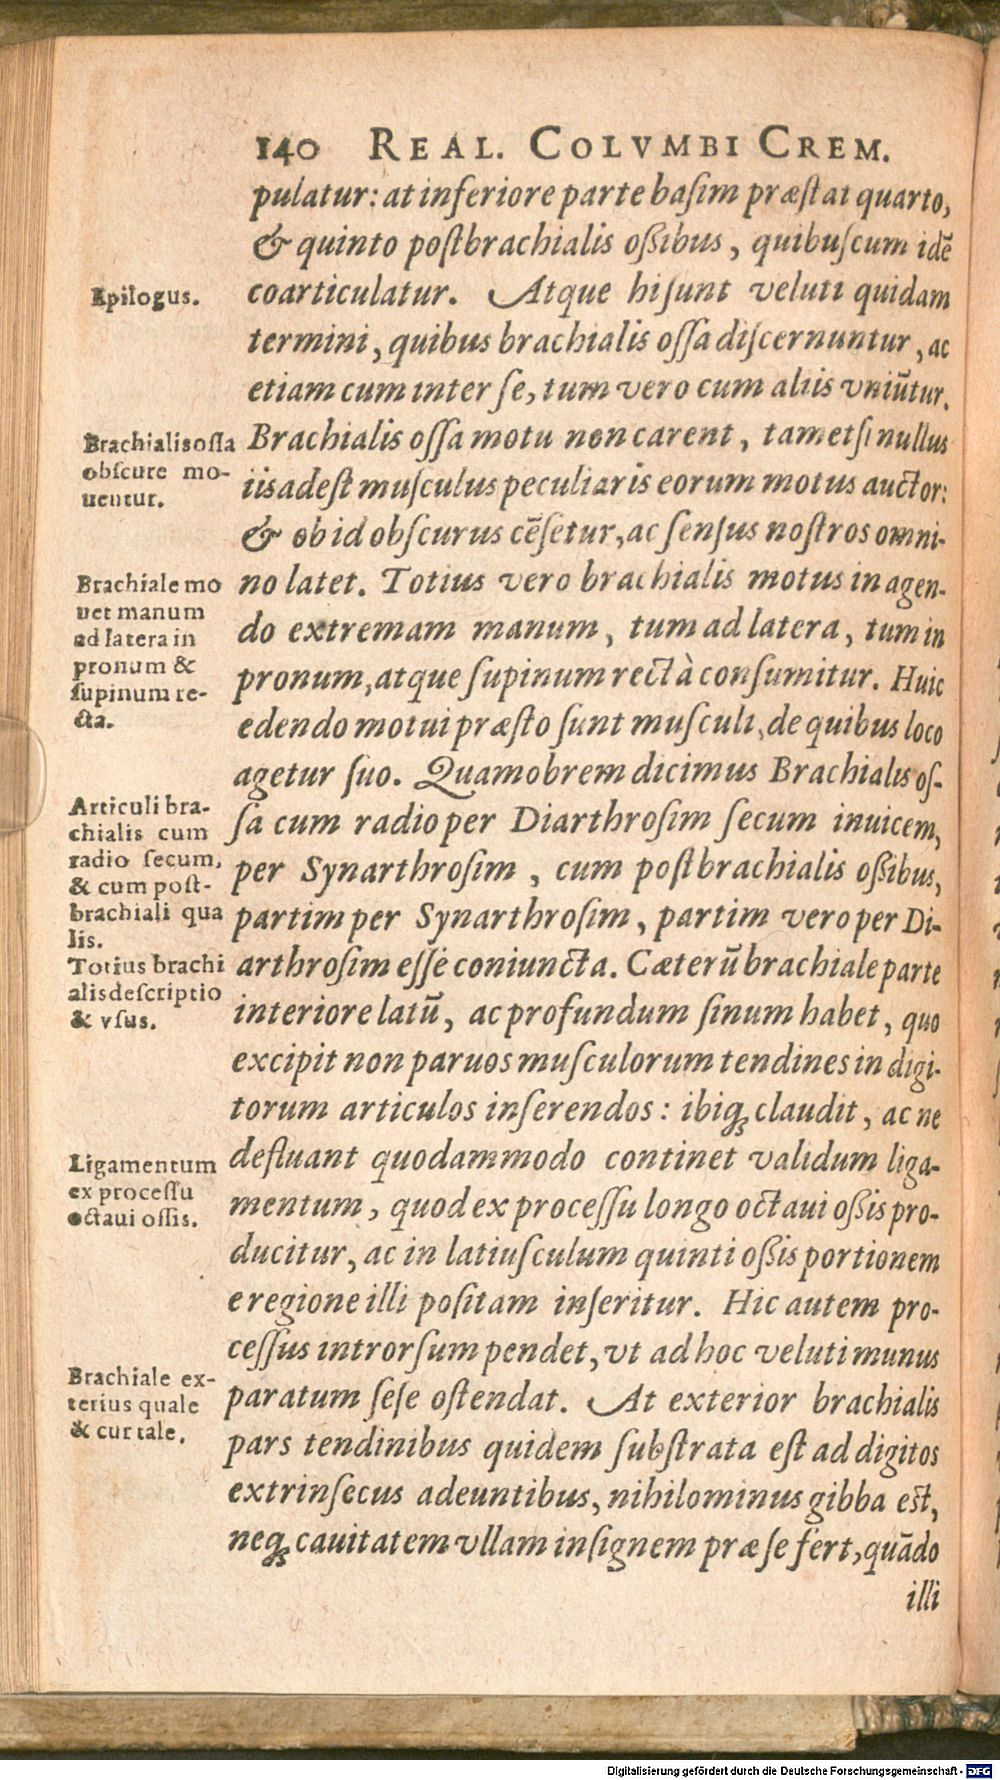 140 REAL. COLVMBI CREM.
pulatur: at inferiore parte basim præstat quarto,
& quinto postbrachialis oßibus, quibuscum idē
Epilogus.
coarticulatur. Atque hi sunt veluti quidam
termini, quibus brachialis ossa discernuntur, ac
etiam cum inter se, tum vero cum aliis vniūtur.
Brachialis ossa
obscure mo-
uentur.
Brachialis ossa motu non carent, tametsi nullus
iis adest musculus peculiaris eorum motus auctor:
& ob id obscurus cēsetur, ac sensus nostros omni-
Brachiale mo
uet manum
ad latera in
pronum &
supinum re-
cta.
no latet. Totius vero brachialis motus in agen-
do extremam manum, tum ad latera, tum in
pronum, atque supinum rectà consumitur. Huic
edendo motui præsto sunt musculi, de quibus loco
agetur suo. Quamobrem dicimus Brachialis os-
Articuli bra-
chialis cum
radio secum,
& cum post-
brachiali qua
lis.
sa cum radio per Diarthrosim secum inuicem,
per Synarthrosim, cum postbrachialis oßibus,
partim per Synarthrosim, partim vero per Di-
Totius brachi
alis descriptio
& vsus.
arthrosim esse coniuncta. Cæterū brachiale parte
interiore latū, ac profundum sinum habet, quo
excipit non paruos musculorum tendines in digi-
torum articulos inserendos: ibiq; claudit, ac ne
Ligamentum
ex processu
octaui ossis.
defluant quodammodo continet validum liga-
mentum, quod ex processu longo octaui oßis pro-
ducitur, ac in latiusculum quinti oßis portionem
e regione illi positam inseritur. Hic autem pro-
cessus introrsum pendet, vt ad hoc veluti munus
Brachiale ex-
terius quale
& cur tale.
paratum sese ostendat. At exterior brachialis
pars tendinibus quidem substrata est ad digitos
extrinsecus adeuntibus, nihilominus gibba est,
neq; cauitatem vllam insignem præ se fert, quādo
illi
Digitalisierung gefördert durch die Deutsche Forschungsgemeinschaft - DFG